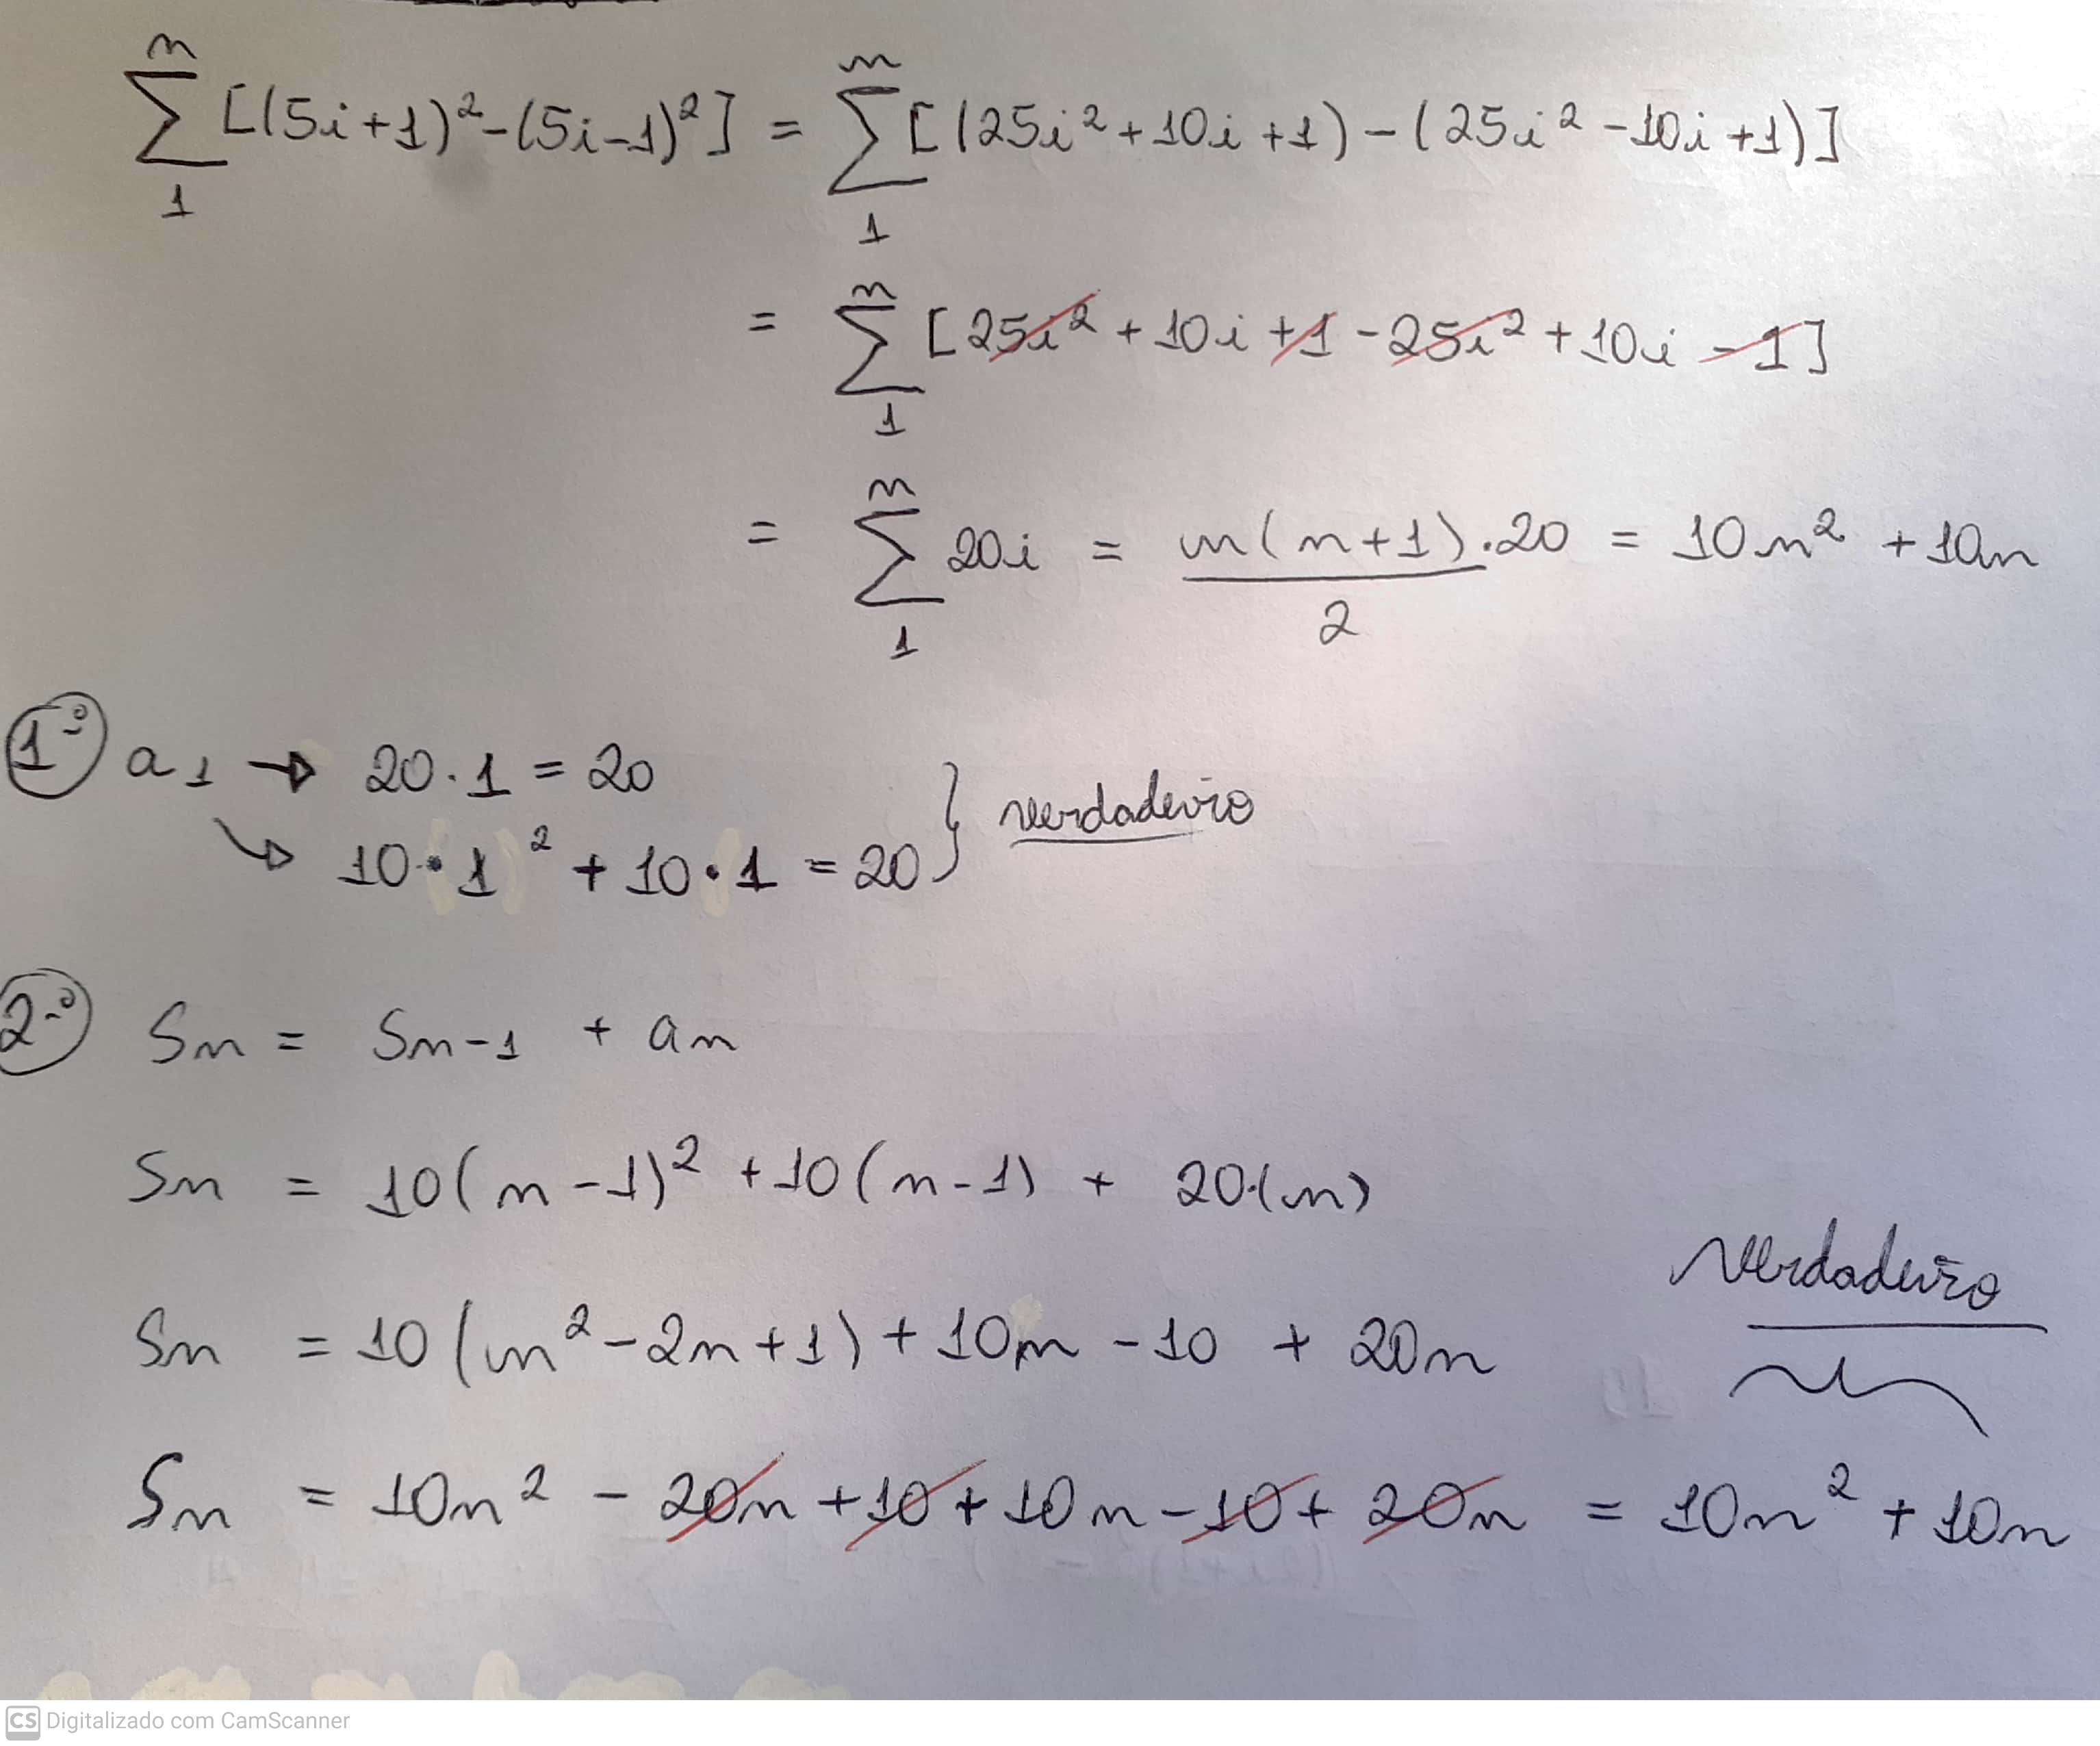 n n
∑ [(5i+1)²-(5i-1)²] = ∑ [(25i²+10i+1)-(25i²-10i+1)]
1 1
n
= ∑ [25i²+10i+1-25i²+10i-1]
1
n
= ∑ 20i = n(n+1).20 = 10n²+10n
1 2
1º a1 → 20.1 = 20
↘ 10•1² + 10•1 = 20 } verdadeiro
2º Sn = Sn-1 + an
Sn = 10(n-1)² + 10(n-1) + 20.(n)
verdadeiro
Sn = 10(n²-2n+1) + 10n - 10 + 20n
Sn = 10n² - 20n + 10 + 10n - 10 + 20n = 10n² + 10n
CS Digitalizado com CamScanner